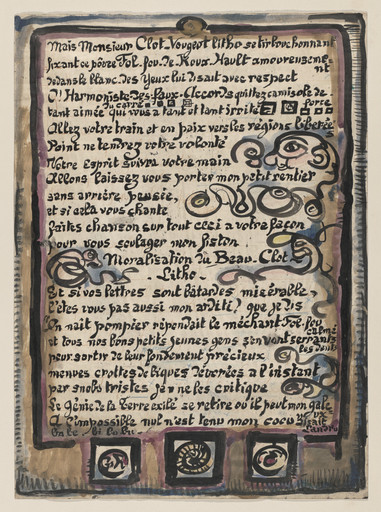 Mais Monsieur Clot-Vougeot litho se tirbouchonnant
fixant ce pôvre Fol-fou-de Roux-Hault amoureusement
dedans le blanc des yeux lui disait avec respect
O! Harmoniste-des-faux-accords quittez camisole de force
du carré
tant aimée qui vous a tant et tant irrité
Allez votre train et en paix vers les régions libérées
Point ne tendrez votre volonté
Votre Esprit suivra votre main
Allons laissez vous porter mon petit rentier
sans arrière pensée,
et si celà vous chante
faites chanson sur tout ceci à votre façon
pour vous soulager mon fiston.
Moralisation du Beau-Clot-
-Litho-
Et si vos lettres sont bâtardes misérable,
l'êtes vous pas aussi mon arditi? que je dis
On nait pompier répondait le méchant Fol-fou calmé
et tous nos bons petits jeunes gens s'en vont serrant les dents
pour sortir de leur fondement précieux
menues crottes de biques dévorées à l'instant
par snobs tristes je ne les critique
Le génie de la Terre exilé se retire où il peut mon gâlc
A l'impossible nul n'est tenu mon coeur